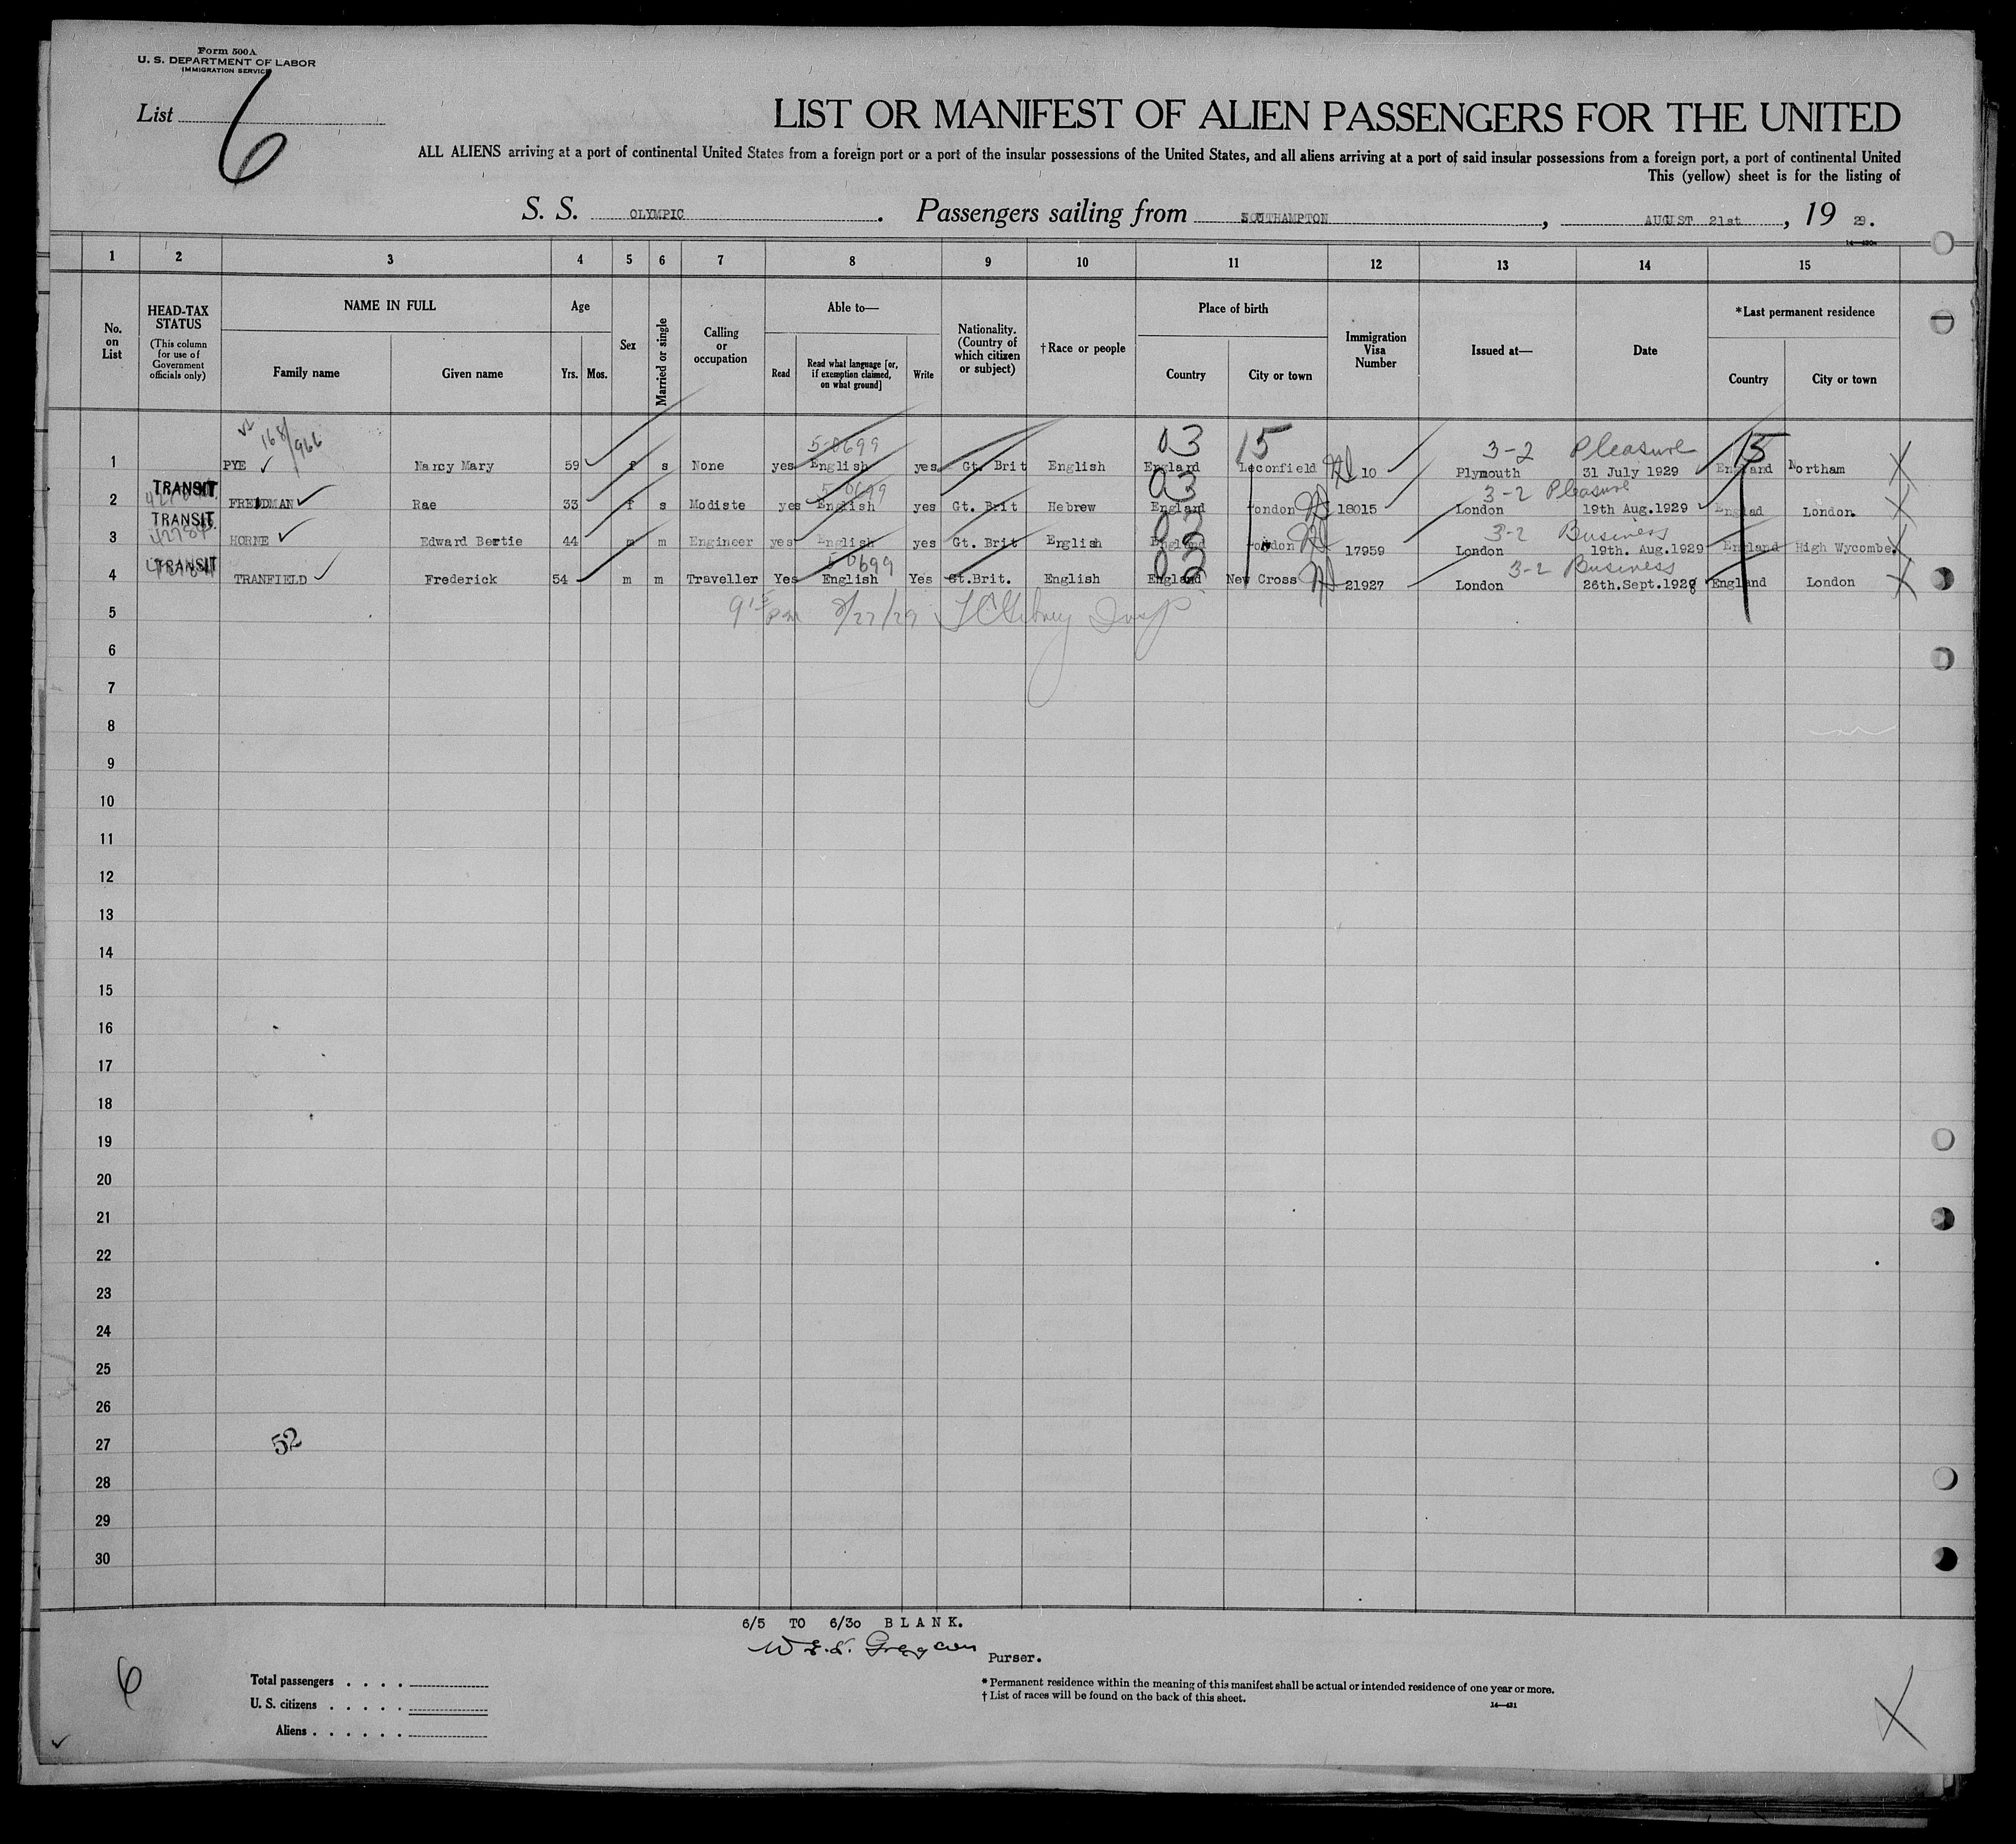 Form 500A
U. S. DEPARTMENT OF LABOR
IMMIGRATION SERVICE
List 6
LIST OR MANIFEST OF ALIEN PASSENGERS FOR THE UNITED
ALL ALIENS arriving at a port of continental United States from a foreign port or a port of the insular possessions of the United States, and all aliens arriving at a port of said insular possessions from a foreign port, a port of continental United
This (yellow) sheet is for the listing of
S. S. OLYMPIC. Passengers sailing from SOUTHAMPTON, AUGUST 21st, 19 29.
1 2 3 4 5 6 7 8 9 10 11 12 13 14 15
No. on List
HEAD-TAX STATUS (This column for use of Government officials only)
NAME IN FULL
Family name Given name
Age
Yrs. Mos.
Sex
Married or single
Calling or occupation
Able to—
Read Read what language [or, if exemption claimed, on what ground] Write
Nationality. (Country of which citizen or subject)
†Race or people
Place of birth
Country City or town
Immigration Visa Number
Issued at—
Date
*Last permanent residence
Country City or town
168/966 5-0699 03 15 3-2 Pleasure 15
1 PYE Nancy Mary 59 f s None yes English yes Gt. Brit English England Leconfield 10 Plymouth 31 July 1929 England Northam
TRANSIT 5-0699 03 3-2 Pleasure
2 FREEDMAN Rae 33 f s Modiste yes English yes Gt. Brit Hebrew England London 18015 London 19th Aug.1929 England London.
TRANSIT 42784 03 3-2 Business
3 HORNE Edward Bertie 44 m m Engineer yes English yes Gt. Brit English England London 17959 London 19th. Aug.1929 England High Wycombe.
TRANSIT 50699 03 3-2 Business
4 TRANFIELD Frederick 54 m m Traveller Yes English Yes Gt.Brit. English England New Cross 21927 London 26th.Sept.1928 England London
9 15 pm 8/27/29 Insp
5
6
7
8
9
10
11
12
13
14
15
16
17
18
19
20
21
22
23
24
25
26
27
52
28
29
30
6/5 TO 6/30 BLANK.
Purser.
6
Total passengers . . . .
U. S. citizens . . . . .
Aliens . . . . . .
* Permanent residence within the meaning of this manifest shall be actual or intended residence of one year or more.
† List of races will be found on the back of this sheet.
14—431